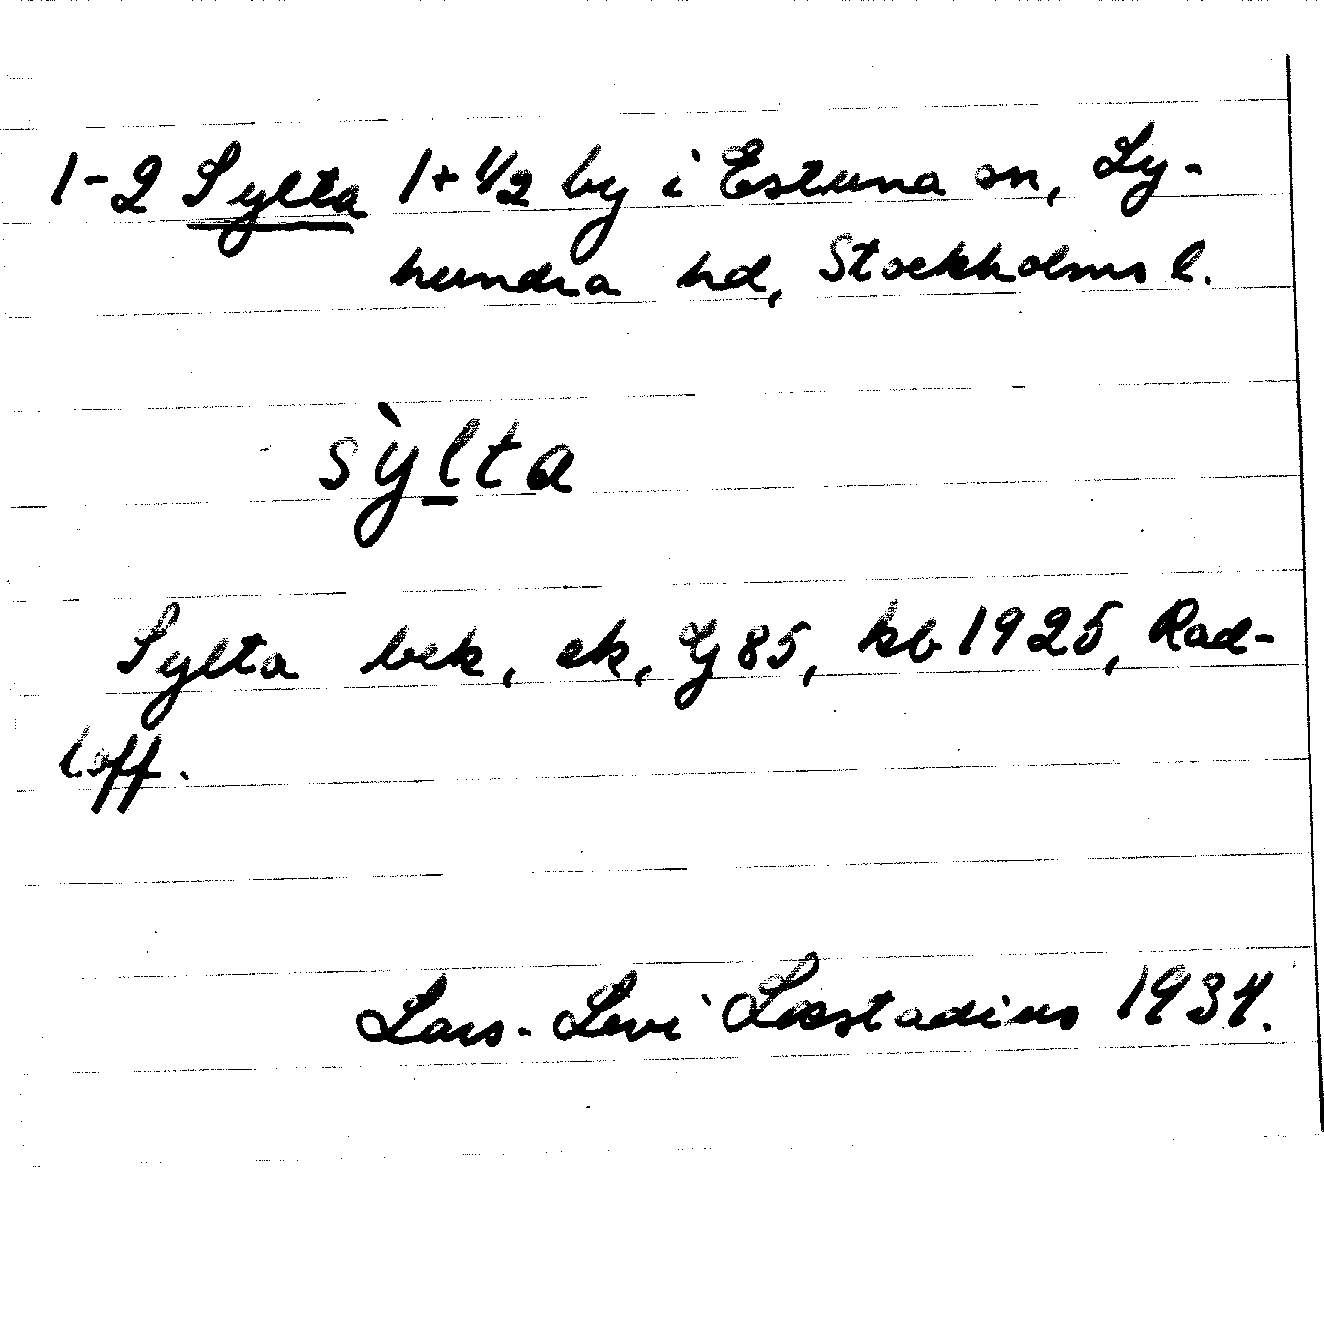 1-2 Sylta 1+1/2 by i Estuna sn, Ly-
hundra hd, Stockholms l.
sỳlta
Sylta bek, ek, Gj 85, kb 1925, Rad-
loff.
Lars-Levi Læstadius 1934.